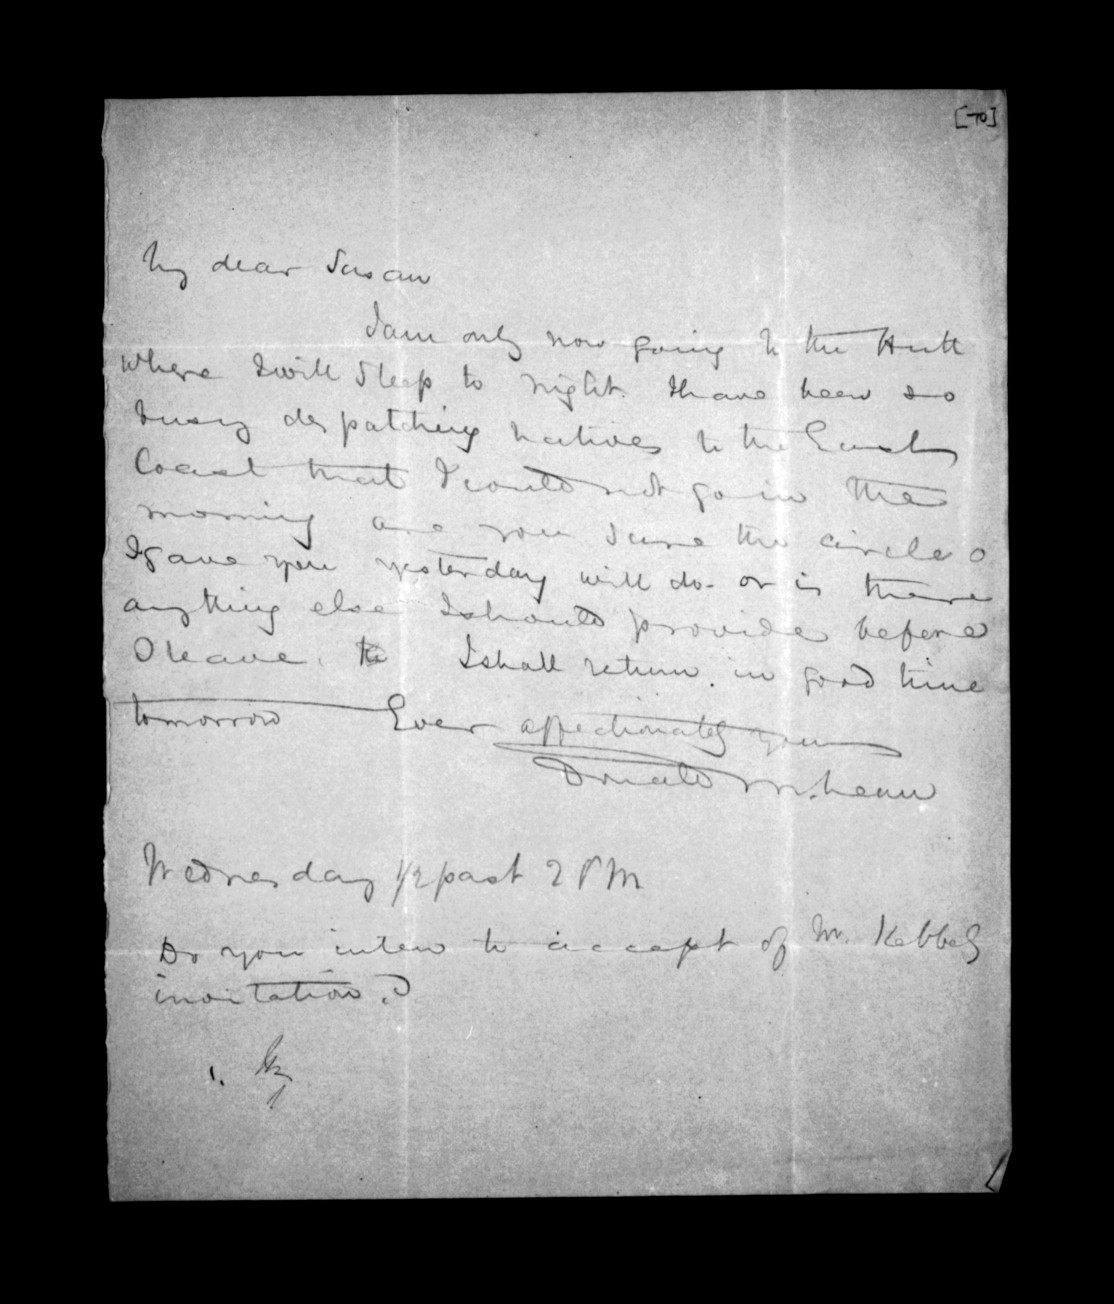 [TO]
My dear Susan
I am only now going to the Hutt
where I will sleep to night. I have been so
busy despatching natives to the East
Coast that I could not go in the
morning are you sure the circle o
I gave you yesterday will do - or is there
anything else I should provide before
I leave. I shall return in good time
tomorrow Ever affectionately yours
Donald McLean
Wednesday 1/2 past 2 PM
Do you inten to accept of Mr. Kebbels
invitation?